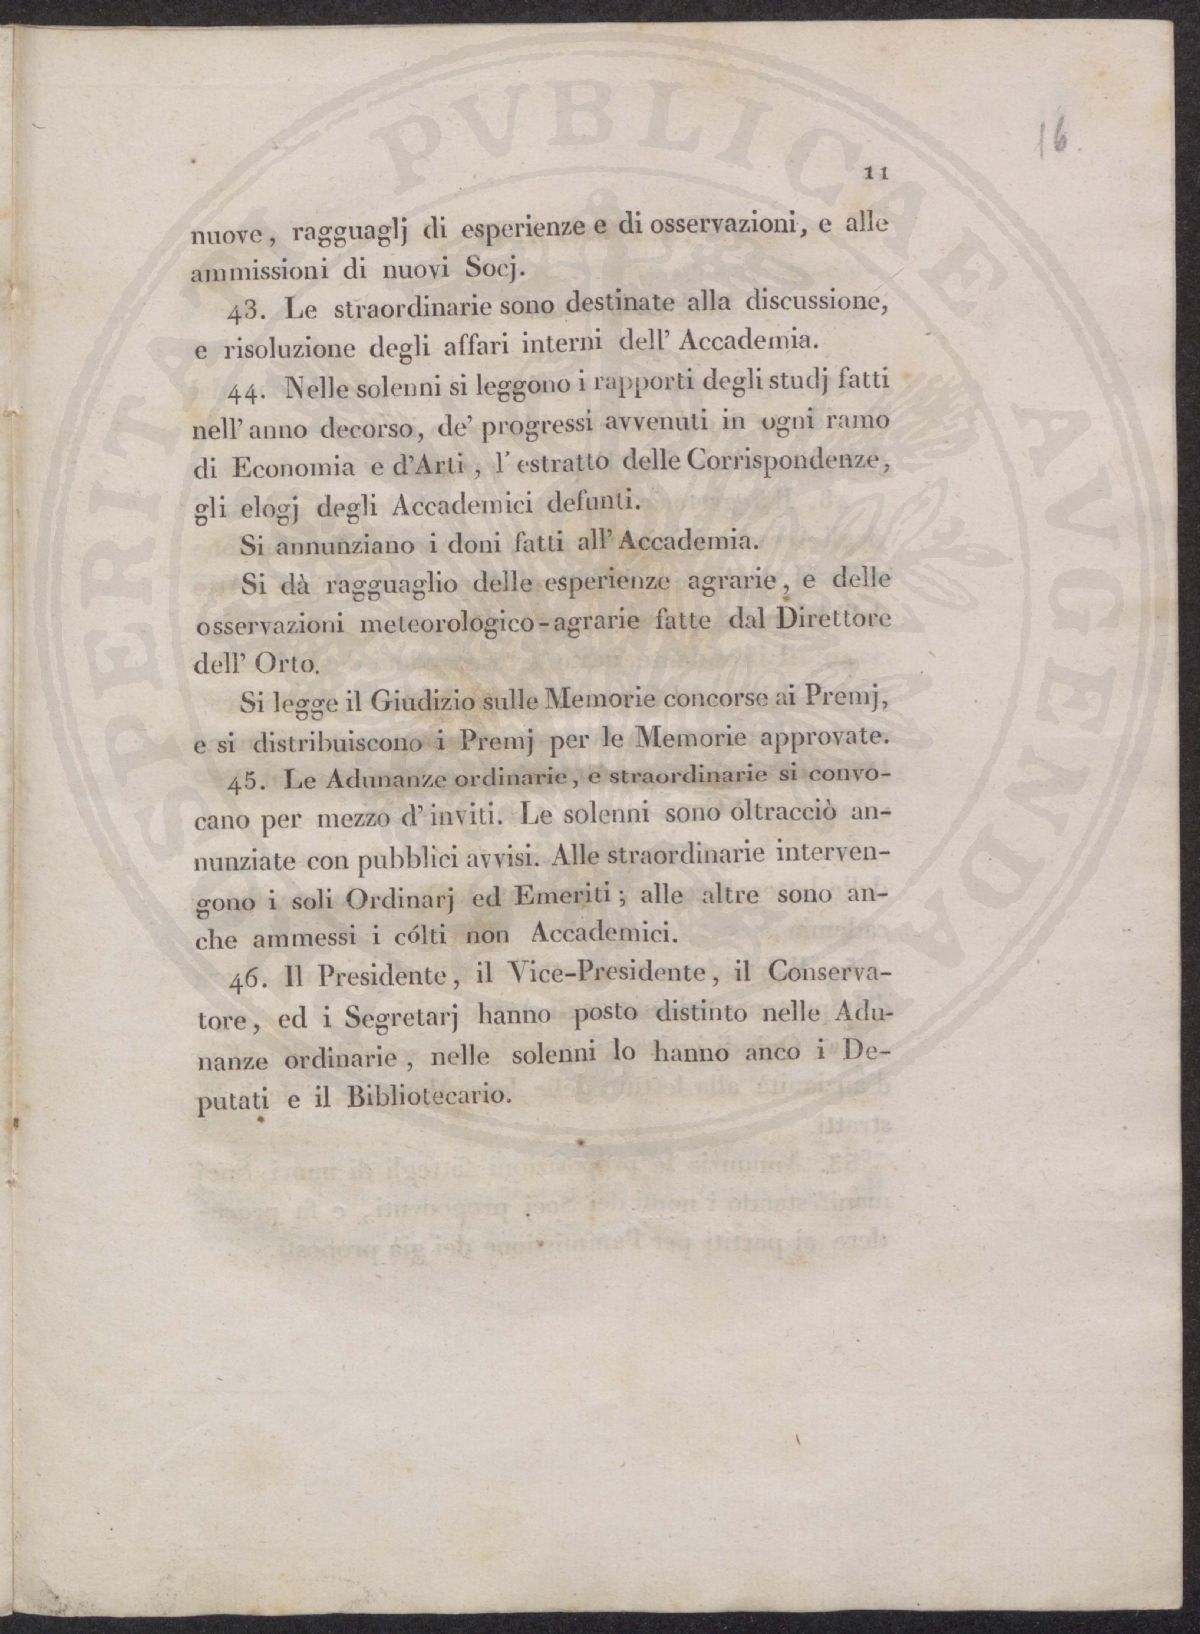 16.
11
nuove, ragguaglj di esperienze e di osservazioni, e alle
ammissioni di nuovi Socj.
43. Le straordinarie sono destinate alla discussione,
e risoluzione degli affari interni dell' Accademia.
44. Nelle solenni si leggono i rapporti degli studj fatti
nell' anno decorso, de' progressi avvenuti in ogni ramo
di Economia e d'Arti, l' estratto delle Corrispondenze,
gli elogj degli Accademici defunti.
Si annunziano i doni fatti all' Accademia.
Si dà ragguaglio delle esperienze agrarie, e delle
osservazioni meteorologico-agrarie fatte dal Direttore
dell' Orto.
Si legge il Giudizio sulle Memorie concorse ai Premj,
e si distribuiscono i Premj per le Memorie approvate.
45. Le Adunanze ordinarie, e straordinarie si convo-
cano per mezzo d' inviti. Le solenni sono oltracciò an-
nunziate con pubblici avvisi. Alle straordinarie interven-
gono i soli Ordinarj ed Emeriti; alle altre sono an-
che ammessi i cólti non Accademici.
46. Il Presidente, il Vice-Presidente, il Conserva-
tore, ed i Segretarj hanno posto distinto nelle Adu-
nanze ordinarie, nelle solenni lo hanno anco i De-
putati e il Bibliotecario.
PVBLICAE AVGENDAE